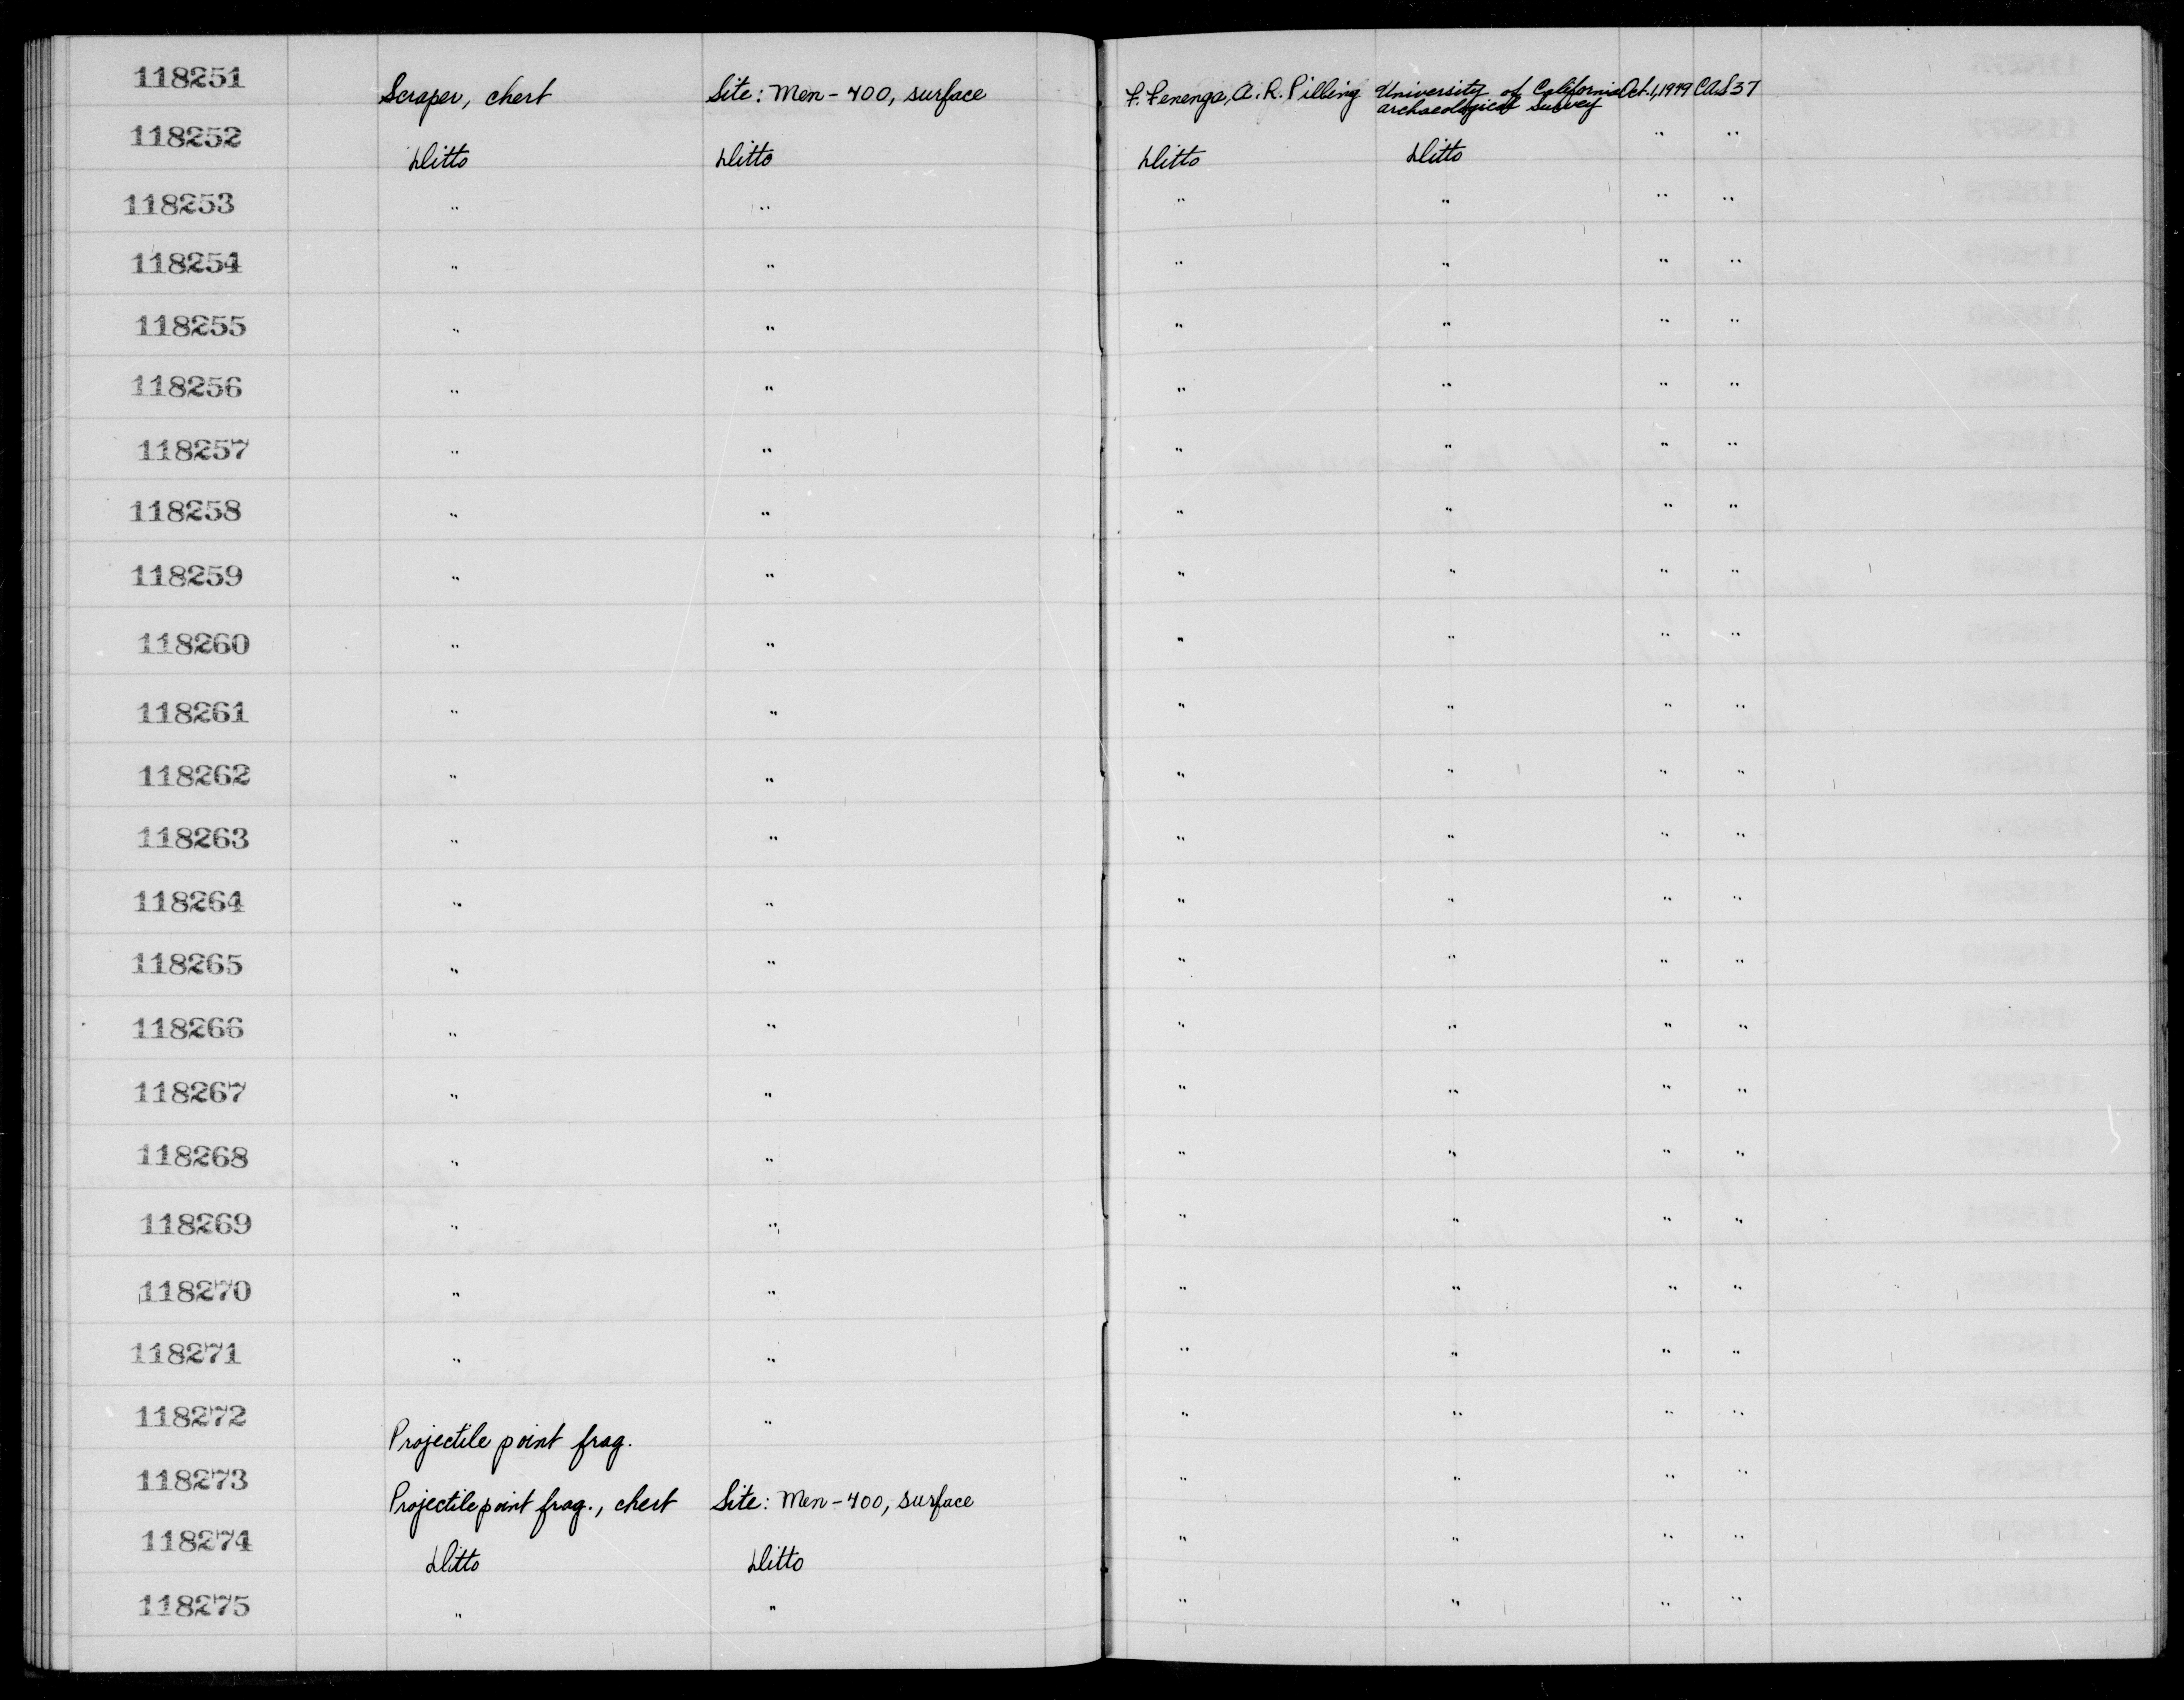 118251 Scraper, chert Site: Men-400, surface F. Fenenga, A. R. Pilling University of California Archaeological Survey Oct. 1, 1949 CAS 37
118252 Ditto Ditto Ditto Ditto " "
118253 " " " " " "
118254 " " " " " "
118255 " " " " " "
118256 " " " " " "
118257 " " " " " "
118258 " " " " " "
118259 " " " " " "
118260 " " " " " "
118261 " " " " " "
118262 " " " " " "
118263 " " " " " "
118264 " " " " " "
118265 " " " " " "
118266 " " " " " "
118267 " " " " " "
118268 " " " " " "
118269 " " " " " "
118270 " " " " " "
118271 " " " " " "
118272 Projectile point frag. " " " " "
118273 Projectile point frag., chert Site: Men-400, surface " " " "
118274 Ditto Ditto " " " "
118275 " " " " " "